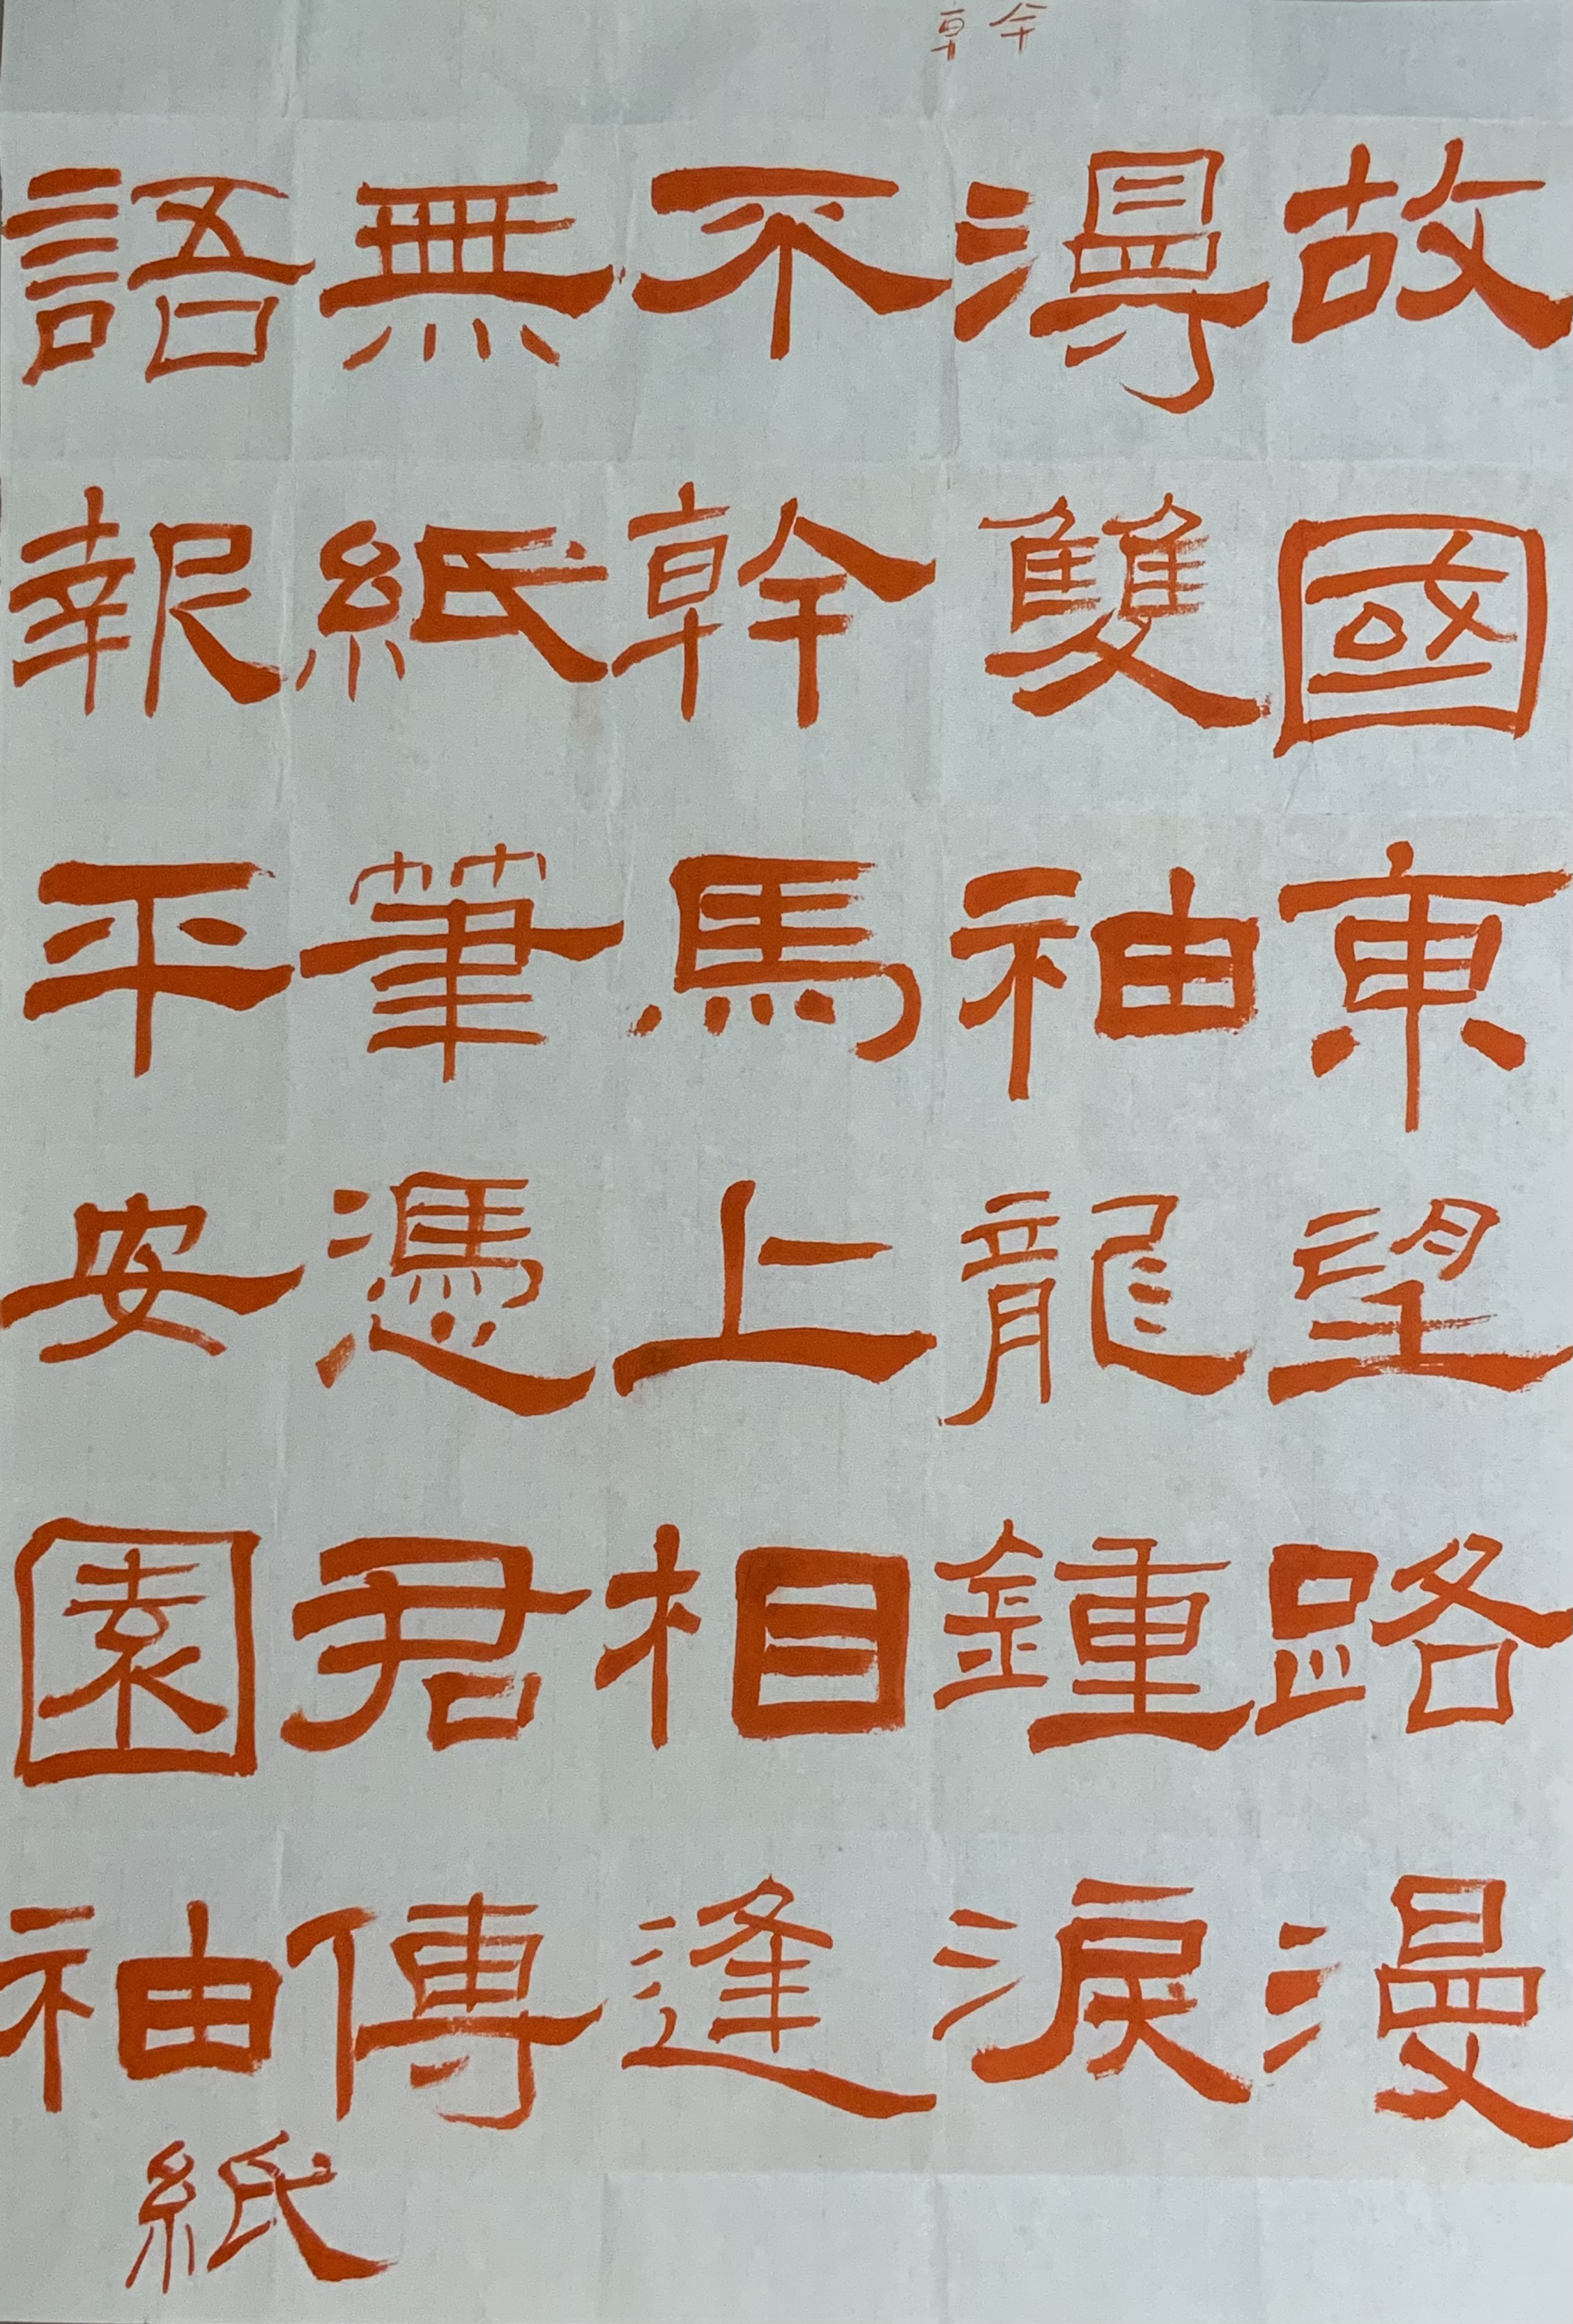 幹
故國東望路漫
漫雙袖龍鍾淚
不幹馬上相逢
無紙筆憑君傳
語報平安園袖
紙